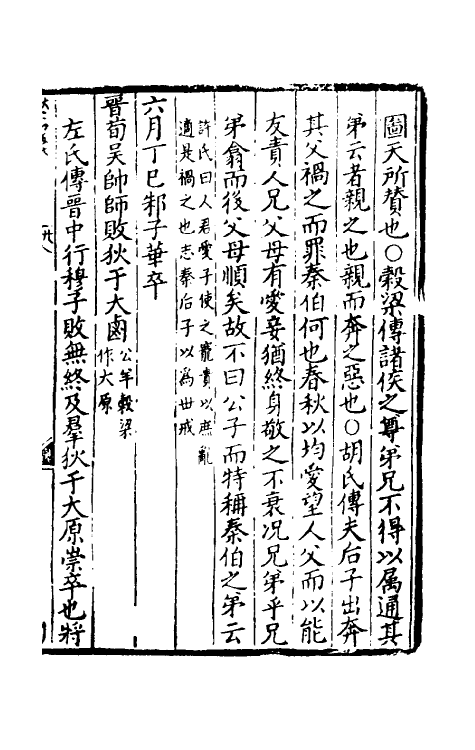 圖天所贊也○穀梁傳諸侯之尊弟兄不得以属通其
弟云者親之也親而奔之惡也○胡氏傳夫后子出奔
其父禍之而罪秦伯何也春秋以均愛望人父而以能
友責人兄父母有愛妾猶終身敬之不衰况兄弟乎兄
弟翕而後父母順矣故不曰公子而特稱秦伯之弟云
許氏曰人君愛子使之寵貴以庶亂
適是禍之也志秦后子以爲世戒
六月丁巳邾子華卒
晉荀吴帥師敗狄于大鹵公羊穀梁
作大原
左氏傳晉中行穆子敗無終及羣狄于大原崇卒也將